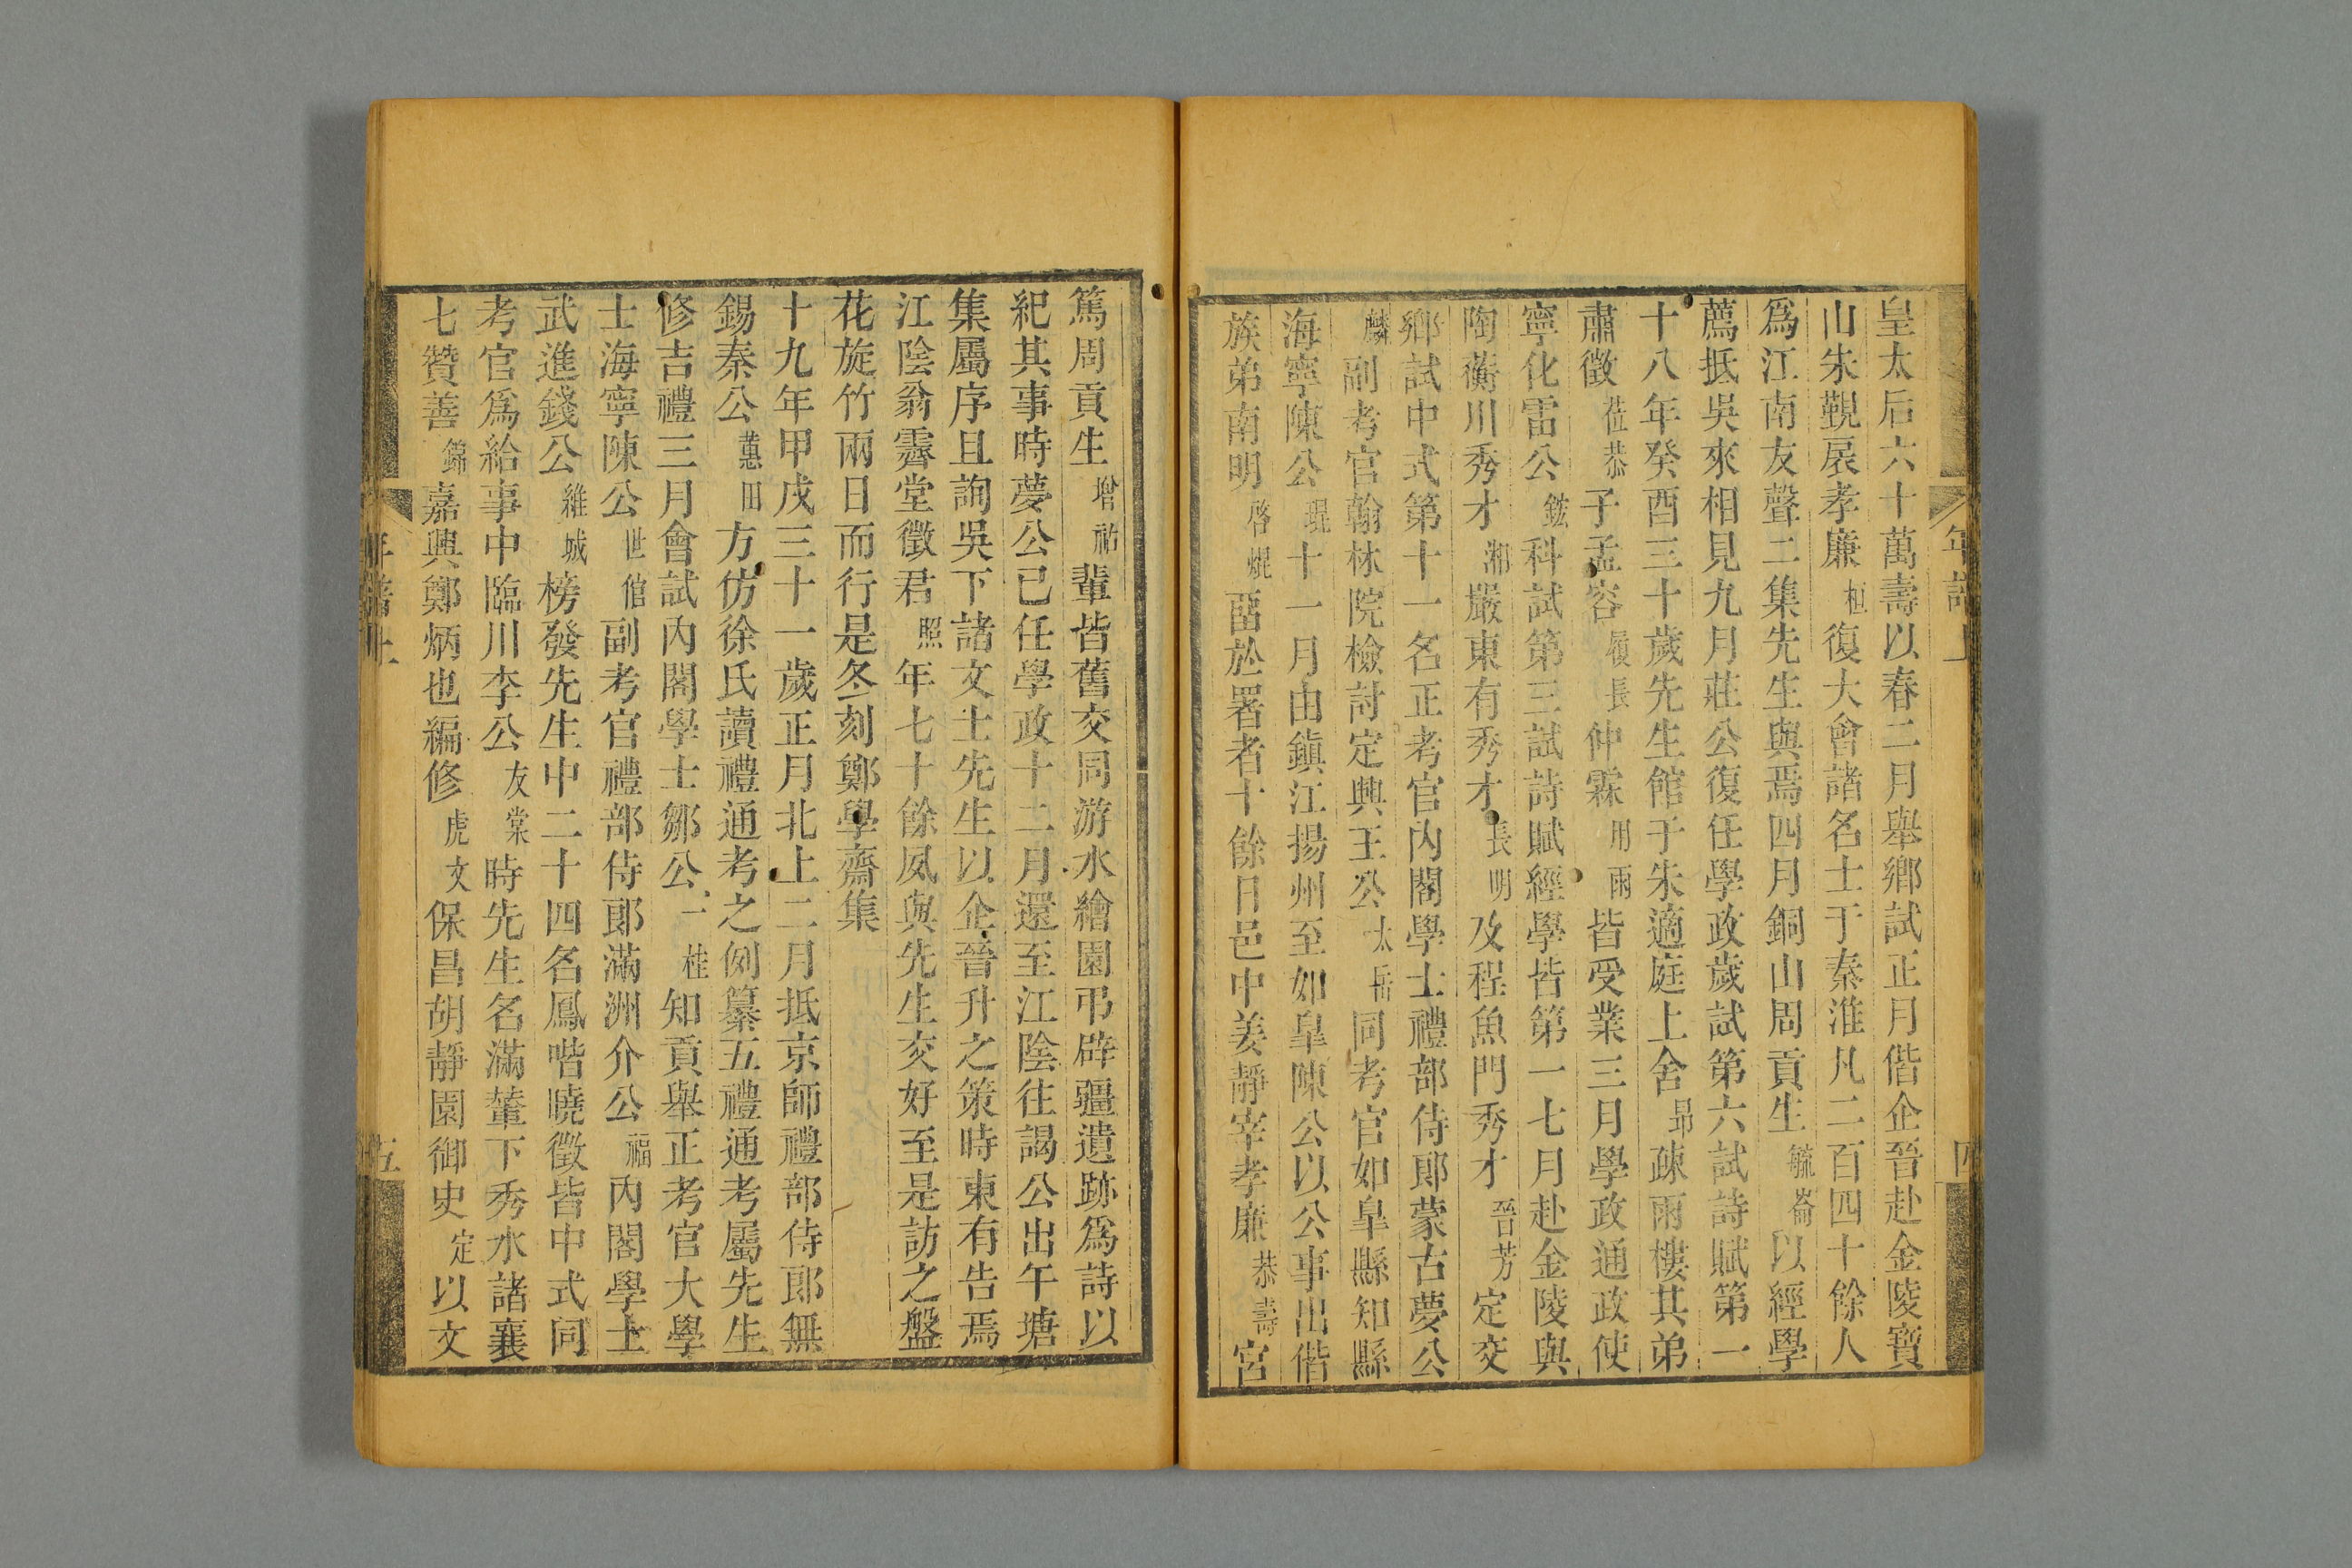 年譜上
四
皇太后六十萬壽以春二月舉鄉試正月偕企晉赴金陵寶
山朱覲扆孝廉桓復大會諸名士于秦淮凡二百四十餘人
爲江南友聲二集先生與焉四月銅山周貢生毓崙以經學
薦抵吳來相見九月莊公復任學政歲試第六試詩賦第一
十八年癸酉三十歲先生館于朱適庭上舍昻疎雨樓其弟
肅徵莅恭子孟容履長仲霖用雨皆受業三月學政通政使
寧化雷公鋐科試第三試詩賦經學皆第一七月赴金陵與
陶蘅川秀才湘嚴東有秀才長明及程魚門秀才晉芳定交
鄉試中式第十一名正考官內閣學士禮部侍郞蒙古夢公
麟副考官翰林院檢討定興王公太岳同考官如臯縣知縣
海寧陳公琨十一月由鎮江揚州至如臯陳公以公事出偕
族弟南明啓焜畱於署者十餘日邑中姜靜宰孝廉恭壽宮
篤周貢生增祐輩皆舊交同游水繪園弔辟疆遺跡爲詩以
紀其事時夢公已任學政十二月還至江陰往謁公出午塘
集屬序且詢吳下諸文士先生以企晉升之策時東有告焉
江陰翁霽堂徵君照年七十餘夙與先生交好至是訪之盤
花旋竹兩日而行是冬刻鄭學齋集
十九年甲戌三十一歲正月北上二月抵京師禮部侍郞無
錫秦公蕙田方仿徐氏讀禮通考之例纂五禮通考屬先生
修吉禮三月會試內閣學士鄒公一桂知貢舉正考官大學
士海寧陳公世倌副考官禮部侍郞滿洲介公福內閣學士
武進錢公維城榜發先生中二十四名鳳喈曉徵皆中式同
考官爲給事中臨川李公友棠時先生名滿輦下秀水諸襄
七贊善錦嘉興鄭炳也編修虎文保昌胡靜園御史定以文
年譜上
五